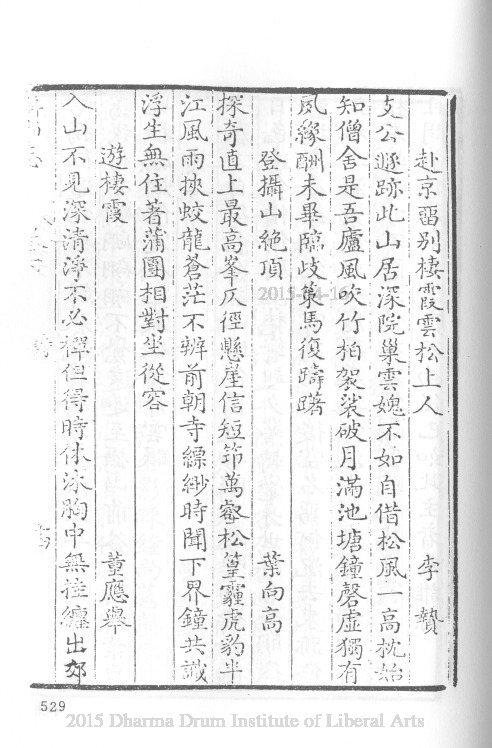 赴京畱別棲霞雲松上人　李贄
支公遯跡此山居深院巢雲媿不如自借松風一高枕始
知僧舍是吾廬風吹竹柏袈裟破月滿池塘鐘磬虛獨有
夙緣酬未畢臨歧策馬復躊躇
登攝山絕頂　葉向高
探奇直上最高峯仄徑懸崖信短筇萬壑松篁霾虎豹半
江風雨挾蛟龍蒼茫不辨前朝寺縹緲時聞下界鐘共識
浮生無住著蒲團相對坐從容
遊棲霞　董應舉
入山不見深清淨不必禪但得時休沐胸中無挂纏出郊
529
2015 Dharma Drum Institute of Liberal Arts